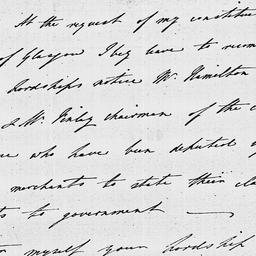 At the request of my constitue
of Glasgow I beg leave to recom
Lordships notice Mr. Hamilton
& Mr. Finlay chairman of the c
who have been deputed
merchants to state their cla
to government
myself your Lordship